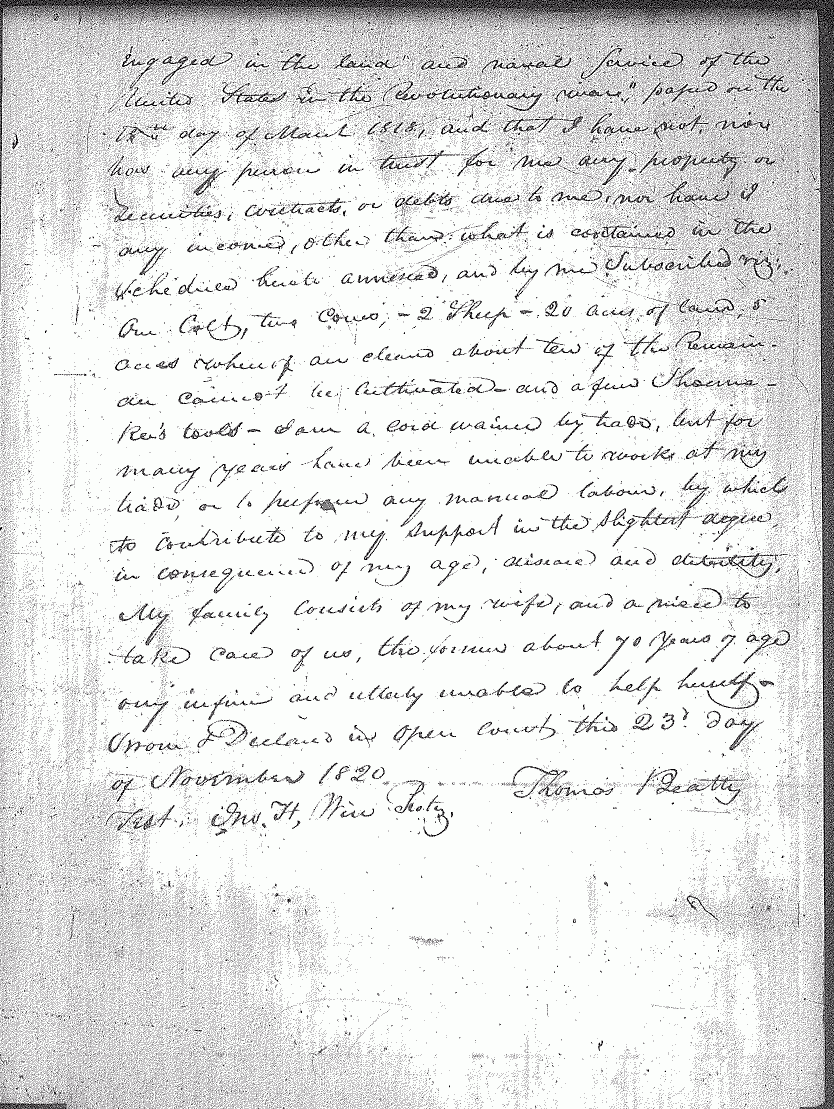 engaged in the land and naval Service of the
United States in the Revolutionary war", passed on the
18th day of March 1818, and that I have not, nor
has any person in trust for me any property or
Securities, contracts, or debts due to me, nor have I
any income, other than what is contained in the
Schedule hereto annexed, and by me Subscribed viz:
One Colt, two Cows, - 2 Sheep - 20 acres of land, 5
acres whereof are cleard about ten of the Remain-
der cannot be Cultivated - and a few Shoema-
ker's tools - I am a cord wainer by trade, but for
many years have been unable to work at my
trade, or to perform any manual labour, by which
to contribute to my Support in the Slightest degree,
in consequence of my age, disease and debility.
My family consists of my wife, and a niece to
take care of us, the former about 70 years of age
very infirm and utterly unable to help herself -
Sworn & Declared in Open Court, this 23d day
of November 1820
Thomas Beatty
Test. Jno. H,